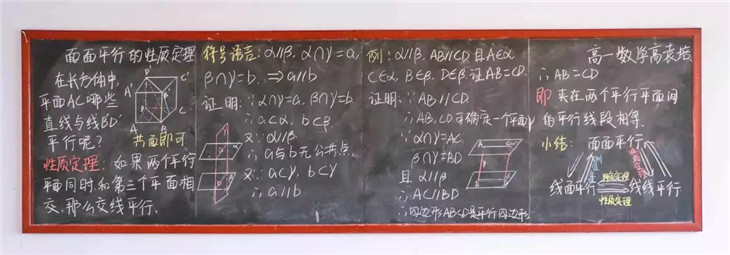 面面平行的性质定理
在长方体中,
平面AC哪些
直线与线B'D'
平行呢?
共面即可
性质定理:如果两个平行
平面同时和第三个平面相
交,那么交线平行.
符号语言:α∥β, α∩γ=a,
β∩γ=b, ⇒a∥b
证明:∵α∩γ=a, β∩γ=b
∴a⊂α, b⊂β
又∵α∥β
∴a与b无公共点
又∵a⊂γ, b⊂γ
∴a∥b
例:α∥β, AB∥CD且A∈α
C∈α, B∈β, D∈β,证AB=CD.
证明:∵AB∥CD
∴AB,CD可确定一个平面γ
∵α∩γ=AC
β∩γ=BD
且α∥β
∴AC∥BD
∴四边形ABCD是平行四边形
高一数学高袁培
∴AB=CD
即 夹在两个平行平面间
的平行线段相等.
小结:面面平行
线面平行
判定定理
性质定理
线线平行